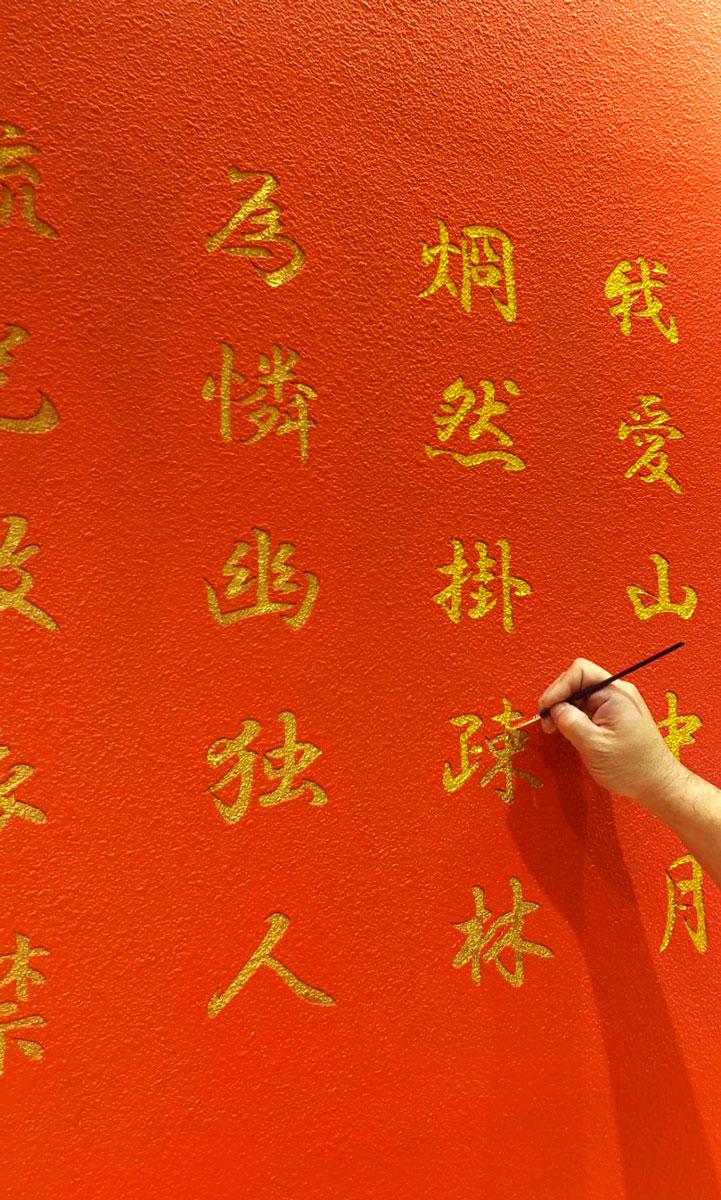 我愛山中月
烱然掛疎林
為憐幽独人